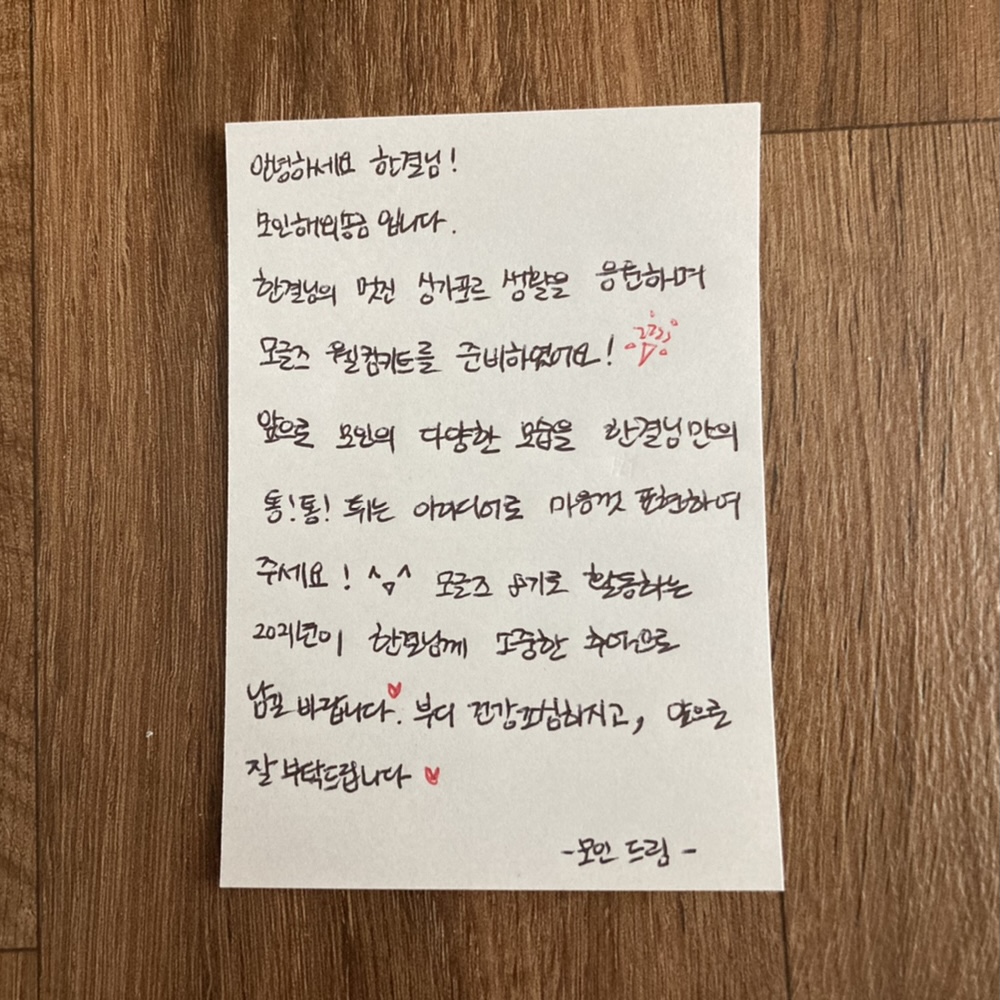 안녕하세요 한결님!
모인해외송금 입니다.
한결님의 멋진 싱가포르 생활을 응원하며
모글즈 웰컴키트를 준비하였어요!
앞으로 모인의 다양한 모습을 한결님만의
통!통! 튀는 아이디어로 마음껏 표현하여
주세요! ^^ 모글즈 8기로 활동하는
2021년이 한결님께 소중한 추억으로
남길 바랍니다♥. 부디 건강조심하시고, 앞으로
잘 부탁드립니다 ♥
-모인 드림-